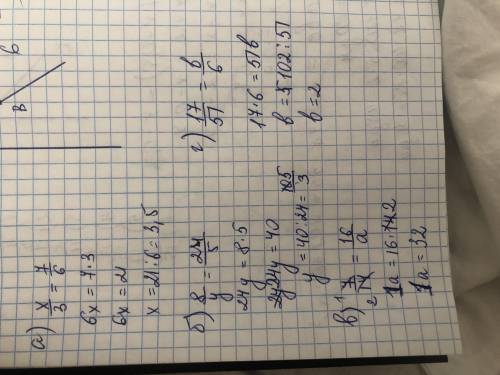 B
в
а) x/3 = 7/6
6x = 7·3
6x = 21
x = 21:6 = 3,5
б) 8/y = 24/5
24y = 8·5
24y = 40
y = 40:24 = 5/3
в) 7/14 = 16/a
1a = 16·2
1a = 32
г) 17/51 = b/6
17·6 = 51b
b = 102:51
b = 2